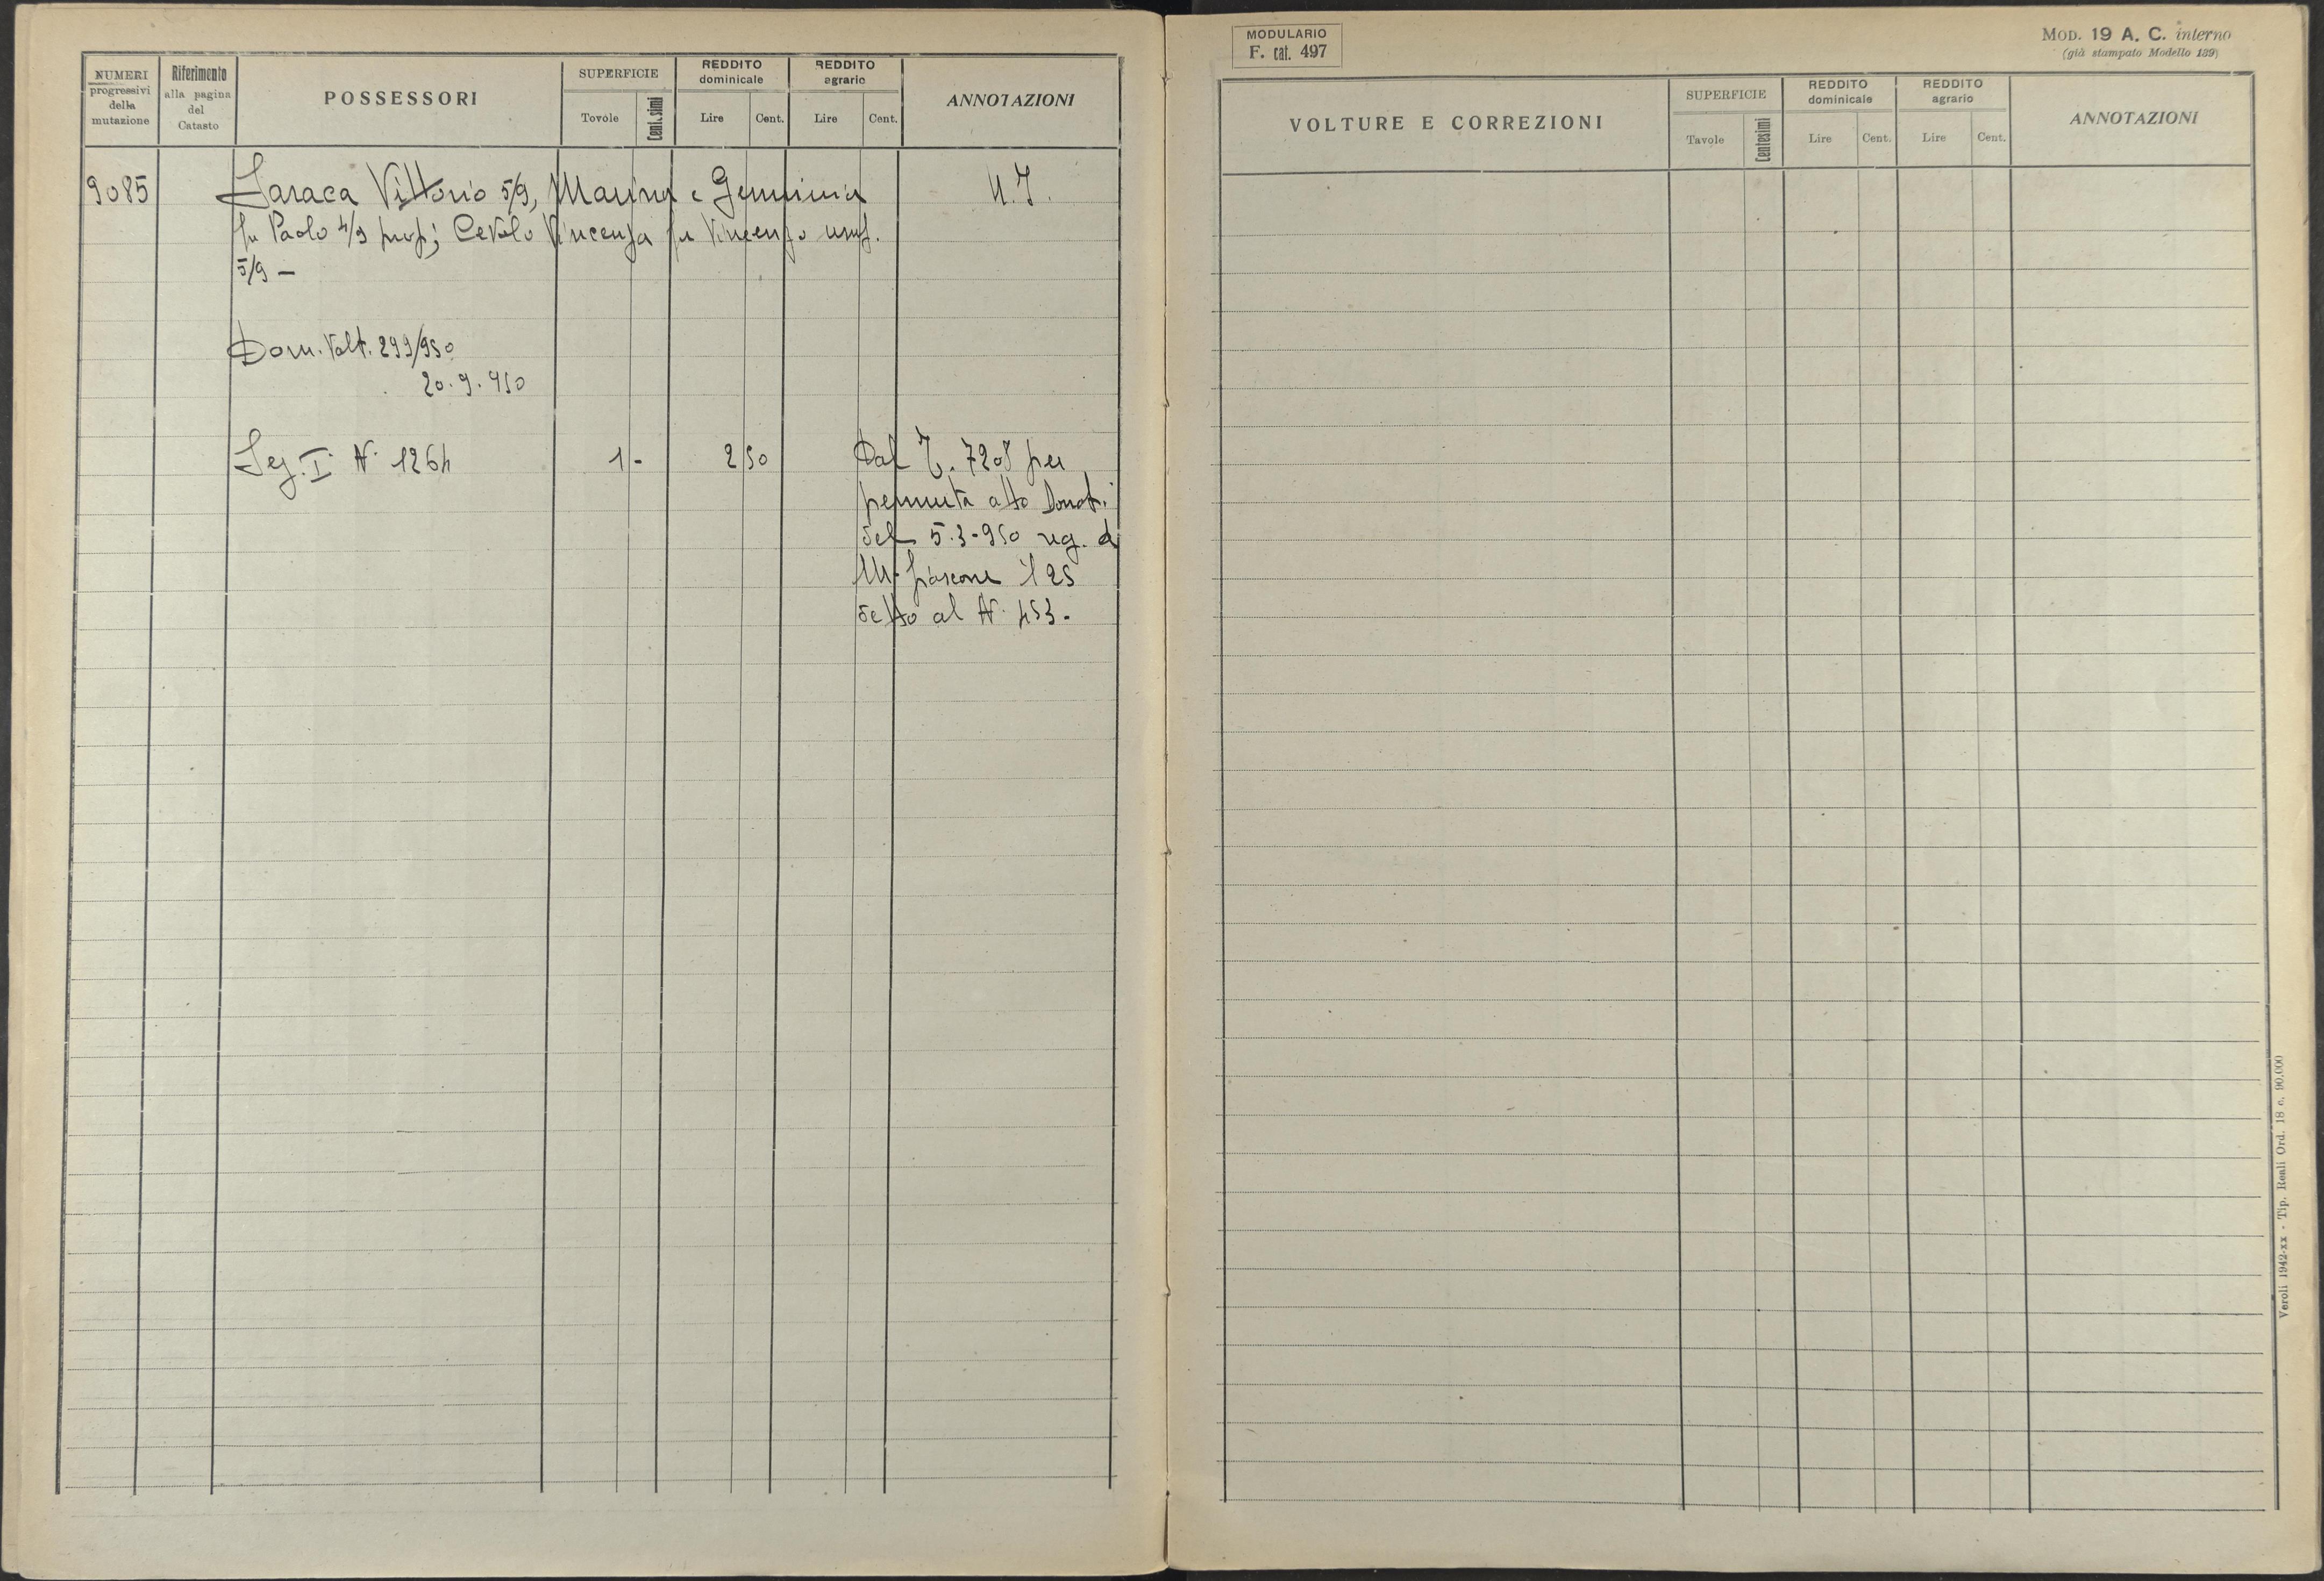 NUMERI
progressivi
della
mutazione
Riferimento
alla pagina
del
Catasto
POSSESSORI
SUPERFICIE
Tovole
Centesimi
REDDITO
dominicale
Lire
Cent.
REDDITO
agrario
Lire
Cent.
ANNOTAZIONI
9085
Saraca Vittorio 5/9, Marina e Gemminia
U.I.
fu Paolo 4/9 prop; Vincenza fu Vincenzo usuf.
5/9 -
Dom. Volt. 299/950
20.9.950
Sez. I N. 1264
1 -
2 50
Dal T. 7208 per
permuta atto Donat.
del 5.3.950 reg. a
M. fiascone il 25
detto al N. 453.
MODULARIO
F. cat. 497
MOD. 19 A. C. interno
(già stampato Modello 139)
VOLTURE E CORREZIONI
SUPERFICIE
Tavole
Centesimi
REDDITO
dominicale
Lire
Cent.
REDDITO
agrario
Lire
Cent.
ANNOTAZIONI
Veroli 1942-xx - Tip. Reali Ord. 18 c. 90.000